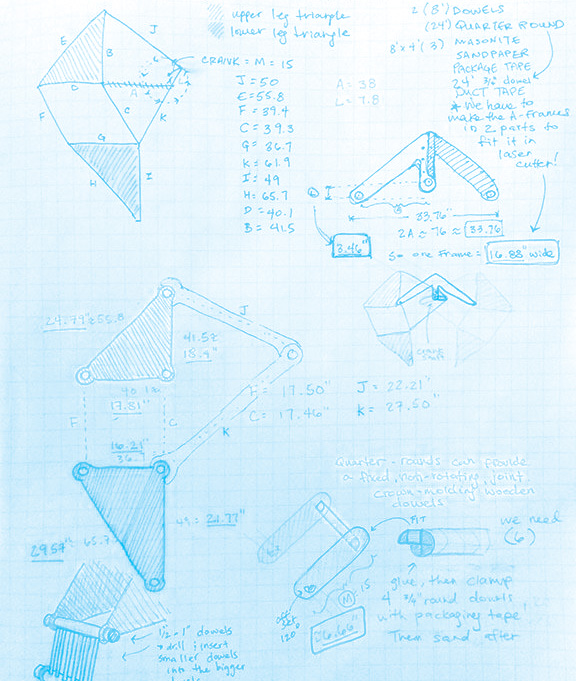 upper leg triangle
lower leg triangle
E
B
J
D
A
F
C
K
G
H
I
CRANK = M = 15
J = 50
E = 55.8
F = 39.4
C = 39.3
G = 36.7
K = 61.9
I = 49
H = 65.7
D = 40.1
B = 41.5
A = 38
L = 7.8
2 (8') DOWELS
(24') QUARTER ROUND
8' x 4' (3) MASONITE
SANDPAPER
PACKAGE TAPE
24' 3/8" dowel
DUCT TAPE
* We have to
make the A-frames
in 2 parts to
fit it in
laser
cutter!
33.76"
2A ≈ 76 ≈ 33.76
3.46"
So one frame = 16.88" wide
24.79" ≈ 55.8
41.5 ≈
18.4"
40.1 ≈
17.81"
J
F
C
K
16.21"
36.7
29.57" ≈ 65.7
49 ≈ 21.77"
F = 17.50"
C = 17.46"
J = 22.21"
K = 27.50"
CRANK
Quarter-rounds can provide
a fixed, non-rotating joint.
Crown-molding wooden
dowels
FIT
we need
(6)
M = 15
6.66"
120°
glue, then clamp
4 3/4" round dowels
with packaging tape.
Then sand after
1/2 - 1" dowels
→ drill & insert
smaller dowels
into the bigger